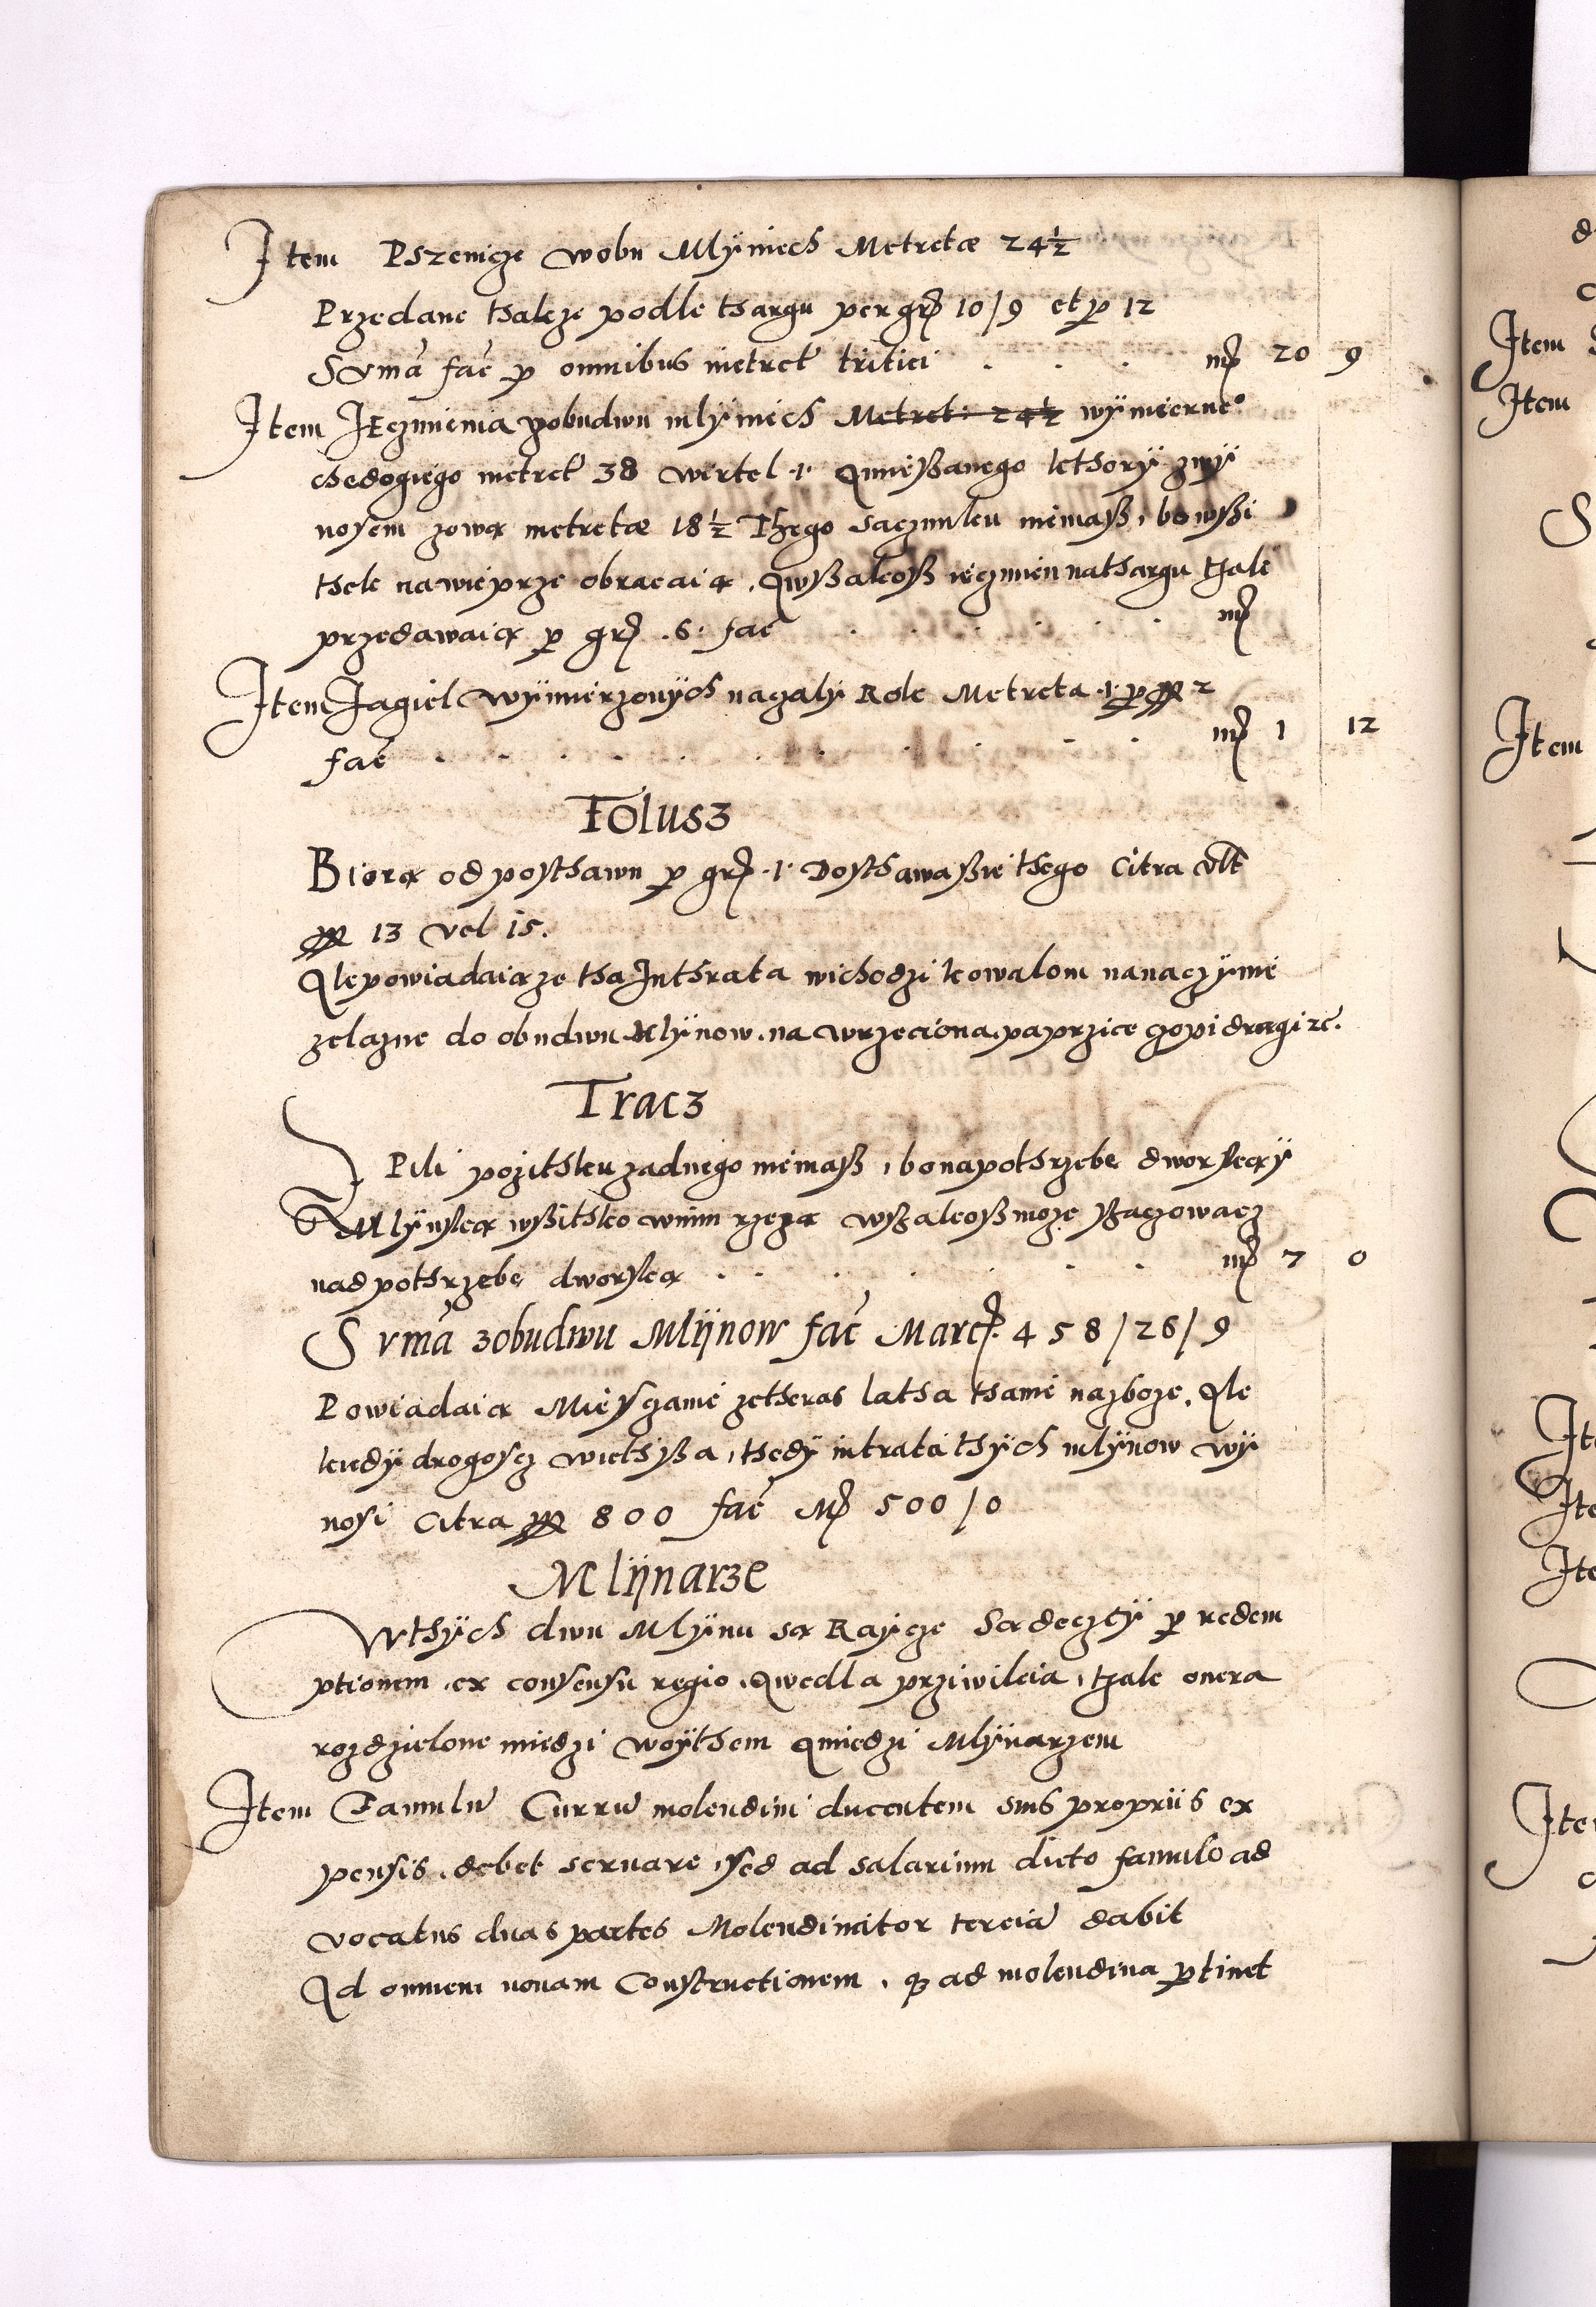 Item Pszenicze wobu Mlÿniech Metretæ 24½
Przedane thakze podle thargu per grͦ 10/9 et p 12
Summa fac̃ p omnibus metret tritici . . . mͬ 20 9
Item Jeczmienia zobudwu mlÿniech Metret: 24½ wÿmierne°
chedogiego metret 38 wiertel ·1· A mießanego kthorÿ zmÿ
nosem zową metretæ 18½ Thego szaczunku niemaß, bo wßi
thek na wieprze obracaią, A wßakoß ięczmien nathargu thak
przedawaią p grͦ .6. fac̃ . . . . . . mͬ
Item Jagiel wÿmierzonÿch nacżalÿ Rok Metreta ·1· p ff 2
fac̃ . . . . . . . . . mͬ 1 12
Folusz
Biorą od posthawu p grͦ ·1· Dosthawaßie thego Citra vlt
ff 13 vel 15.
Ale powiadaią ze tha Inthrata wichodzi kowalom na naczÿnie
zelazne do obudwu Mlÿnow, na wrzeciona, paprzice czopi drągi ꝛc.
Tracz
J Pili pozithku zadnego niemaß, bo na pothrzebę dworską ÿ
Mlÿnską wßithko wnim rzezą wßakoß moze ßaczowacz
nad pothrzebę dworską . . . . . . mͬ 7 0
Summa zobudwu Mlÿnow fac̃ Marcͬ. 458/28/9
Powiadaią Mieyszczanie ze theras latha thanie na zboze. Ale
kiedÿ drogoscz wiethßa, thedÿ intrata thÿch mlÿnow wÿ
nosi Citra ff 800 fac̃ Mͬ 500/0
Mlÿnarze
W thÿch dwu Mlÿnu są Raycze Sądeczcÿ p redem
ptionem, ex consensu regio, A wedla prziwileia, thak onera
rozdzielone miedzi woÿthem A miedzi Mlÿnarzem
Item Famulu̅ Curru̅ molendini ducentem suis propriis ex
pensis, debet seruare, sed ad salarium dicto famulo ad
vocatus duas partes Molendinator tercia̅ dabit
Ad omnem nouam Constructionem, quæ ad molendina ptinet